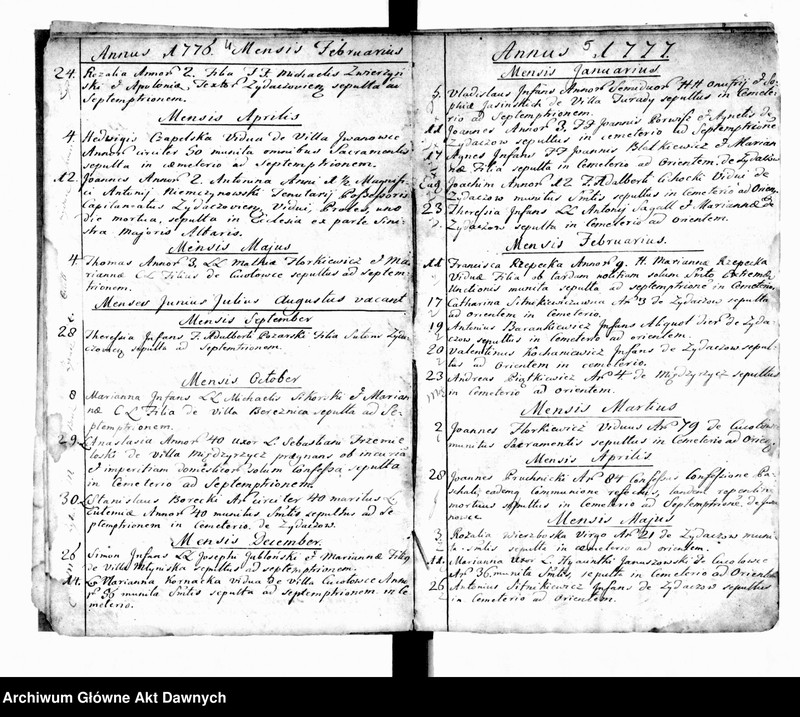 Annus 1776. Mensis Februarius
24. Rozalia Annor 2. Filia Michaelis Zwierzyń
ski et Apolonia, Textor Zydaczoviens sepulta ad
Septemptrionem.
Mensis Aprilis
4. Hedvigis Czapelska Vidua de Villa Jwanowce
Annor circiter 50 munita omnibus Sacramentis
sepulta in cæmeterio ad Septemptrionem.
12. Joannes Annor 2. Antonina Anni 1 1/2 Magnifi-
ci Antonij Niemczynowski Tenutarij Possessoris
Capitaneatus Zydaczoviens Vidui, Proles, uno
die mortua, sepulta in Ecclesia ex parte Sini-
stra Majoris Altaris.
Mensis Majus
4. Thomas Annor 3, LL Mathia Florkiewicz et Ma
rianna CL Filius de Cucolowce sepultus ad septem-
trionem.
Menses Junius Julius Augustus vacant
Mensis September
28 Theressia Infans Adalberti Pozarski Filia Sutoris Zyda-
czoviens sepulta ad Septemtrionem.
Mensis October
8 Marianna Infans LL Michaelis Sikorski et Marian
næ CL Filia de Villa Bereznica sepulta ad Se-
ptemptrionem.
29. Anastasia Annor 40 uxor L. Sebastiani
de villa Międzyrzycz prægnans ob incuria
et imperitiam domesticor solum Confessa sepulta
in Cemeterio ad Septemptrionem.
30. Stanislaus Borecki An circiter 40 maritus L.
Eufemiæ Annor 40 munitus Smtis sepultus ad Se
ptemphrionem in Cemeterio. de Zydaczow.
Mensis December.
26 Simon Infans LL Josephi Jabloński et Mariannæ Filius
de Villa Mlyniska sepultus ad septemptrionem.
11. L. Marianna Kornacka vidua de Villa Cucolowce Anno
r 36 munita Smtis sepulta ad septemphrionem in Ce
meterio.
Annus 1777.
Mensis Januarius
5. Vladislaus Infans Annor HH Onufrij et So-
phiæ Jasinskich de Villa Turady sepultus in Cemete-
rio ad Septemptrionem.
11 Joannes Annor 3. Joannis et Agnetis de
Zydaczow sepultus in cemeterio ad Septemptrione
17 Agnes Infans Joannis Blatkiewicz et Marian
næ Filia sepulta in Cemeterio ad Orientem. de Zydaczow
Joachim Annor 12 Adalberti Cichocki Vidui de
Zydaczow munitus Smtis sepultus in cemeterio ad Orien
23 Theressia Infans LL Antonij et Mariannæ de
Zydaczow sepulta in Cemeterio ad orientem.
Mensis Februarius.
11 Francisca Rzepecka Annor 9. H. Marianna Rzepecka
Viduæ Filia ob tardam notitiam solum Smto Extremæ
Unctionis munita sepulta ad septemptrione in Cemeterio
17 Catharina Sitnikiewiczowna An 3 de Zydaczow sepulta
ad orientem in Cemeterio.
19 Antonius Barankiewicz Infans Aliquot de Zyda-
czow sepultus in Cemeterio ad orientem.
20 Valentinus Kochaniewicz Infans de Zydaczow sepul-
tus ad Orientem in cemeterio.
23 Andreas Piątkiewicz An 4 de Międzyrzycz sepultus
in Cemeterio ad orientem.
Mensis Martius
2 Joannes Florkiewicz Viduus An 79 de Cucolow
munitus Sacramentis sepultus in Cemeterio ad Orien
Mensis Aprilis
28 Joannes Pruchnicki An 84 Confessus Confessione Pa-
schali, eademq Communione refectus, tandem repentin
mortuus sepultus in Cemeterio ad Septemptrione
Mensis Majus
3. Rozalia Wierzbowska Virgo An 21 de Zydaczow muni
ta Smtis sepulta in cæmeterio ad orientem.
11. Marianna uxor L. Hyacinthi Januszowski de Cucolowce
An 36. munita Smtis, sepulta in Cemeterio ad Oriente
26 Antonius Sitnikiewicz Infans de Zydaczow sepultus
in Cemeterio ad Orientem.
Archiwum Główne Akt Dawnych